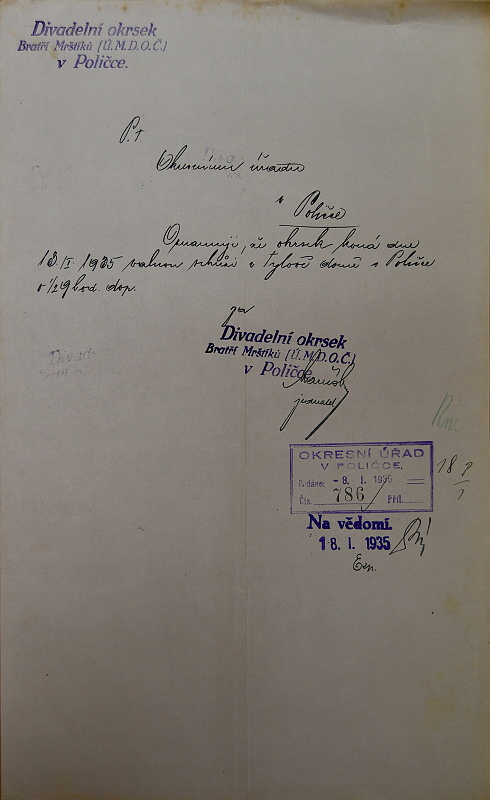 Divadelní okrsek
Bratří Mrštíků (Ú.M.D.O.Č.)
v Poličce.
P. T.
Okresnímu úřadu
v
Poličce
Oznamuji, že okrsek koná dne
13. I. 1935 valnou schůzi v Tylově domě v Poličce
o 1/2 9 hod. dop.
za
Divadelní okrsek
Bratří Mrštíků (Ú.M.D.O.Č.)
v Poličce.
jednatel
OKRESNÍ ÚŘAD
V POLIČCE.
Podáno: - 8. I. 1935
Čís. 786 Příl.
18
Na vědomí.
18. I. 1935